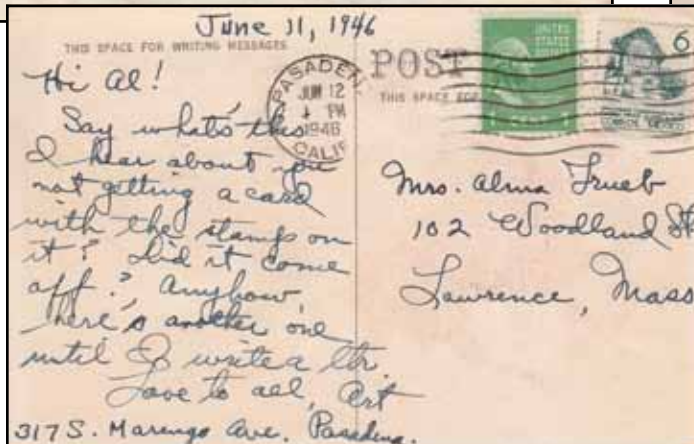 June 11, 1946
THIS SPACE FOR WRITING MESSAGES
Hi Al!
Say what's this
I hear about you
not getting a card
with the stamps on
it? Did it come
off? Anyhow,
here's another one
until I write a ltr.
Love to all, Art
317 S. Marengo Ave. Pasadena.
PASADENA
JUN 12
4 PM
1946
CALIF
POST
THIS SPACE FOR
UNITED
STATES
6
Mrs. Alma Trueb
102 Woodland St
Lawrence, Mass